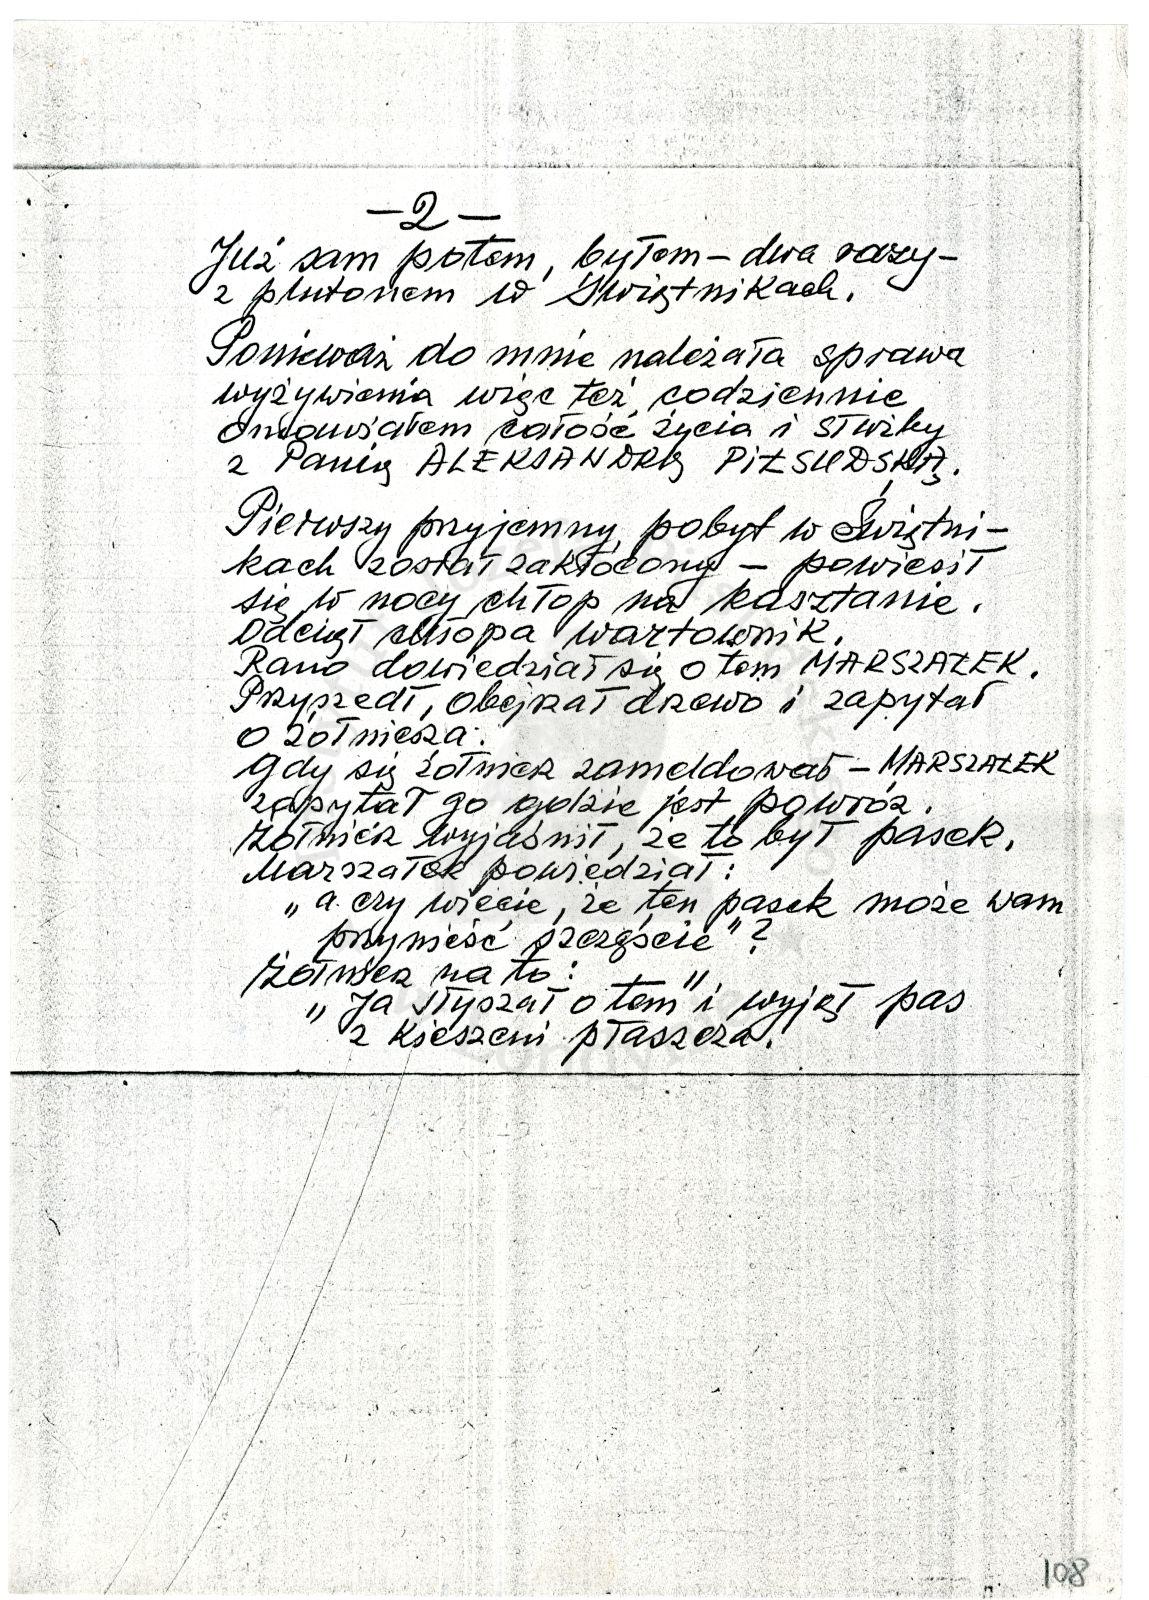 — 2 —
Już sam potem, byłem – dwa razy –
z plutonem w Świątnikach.
Ponieważ do mnie należała sprawa
wyżywienia więc też, codziennie
omawiałem całość życia i służby
z Panią ALEKSANDRĄ PIŁSUDSKĄ.
Pierwszy przyjemny, pobyt w Świątni-
kach został zakłócony – powiesił
się w nocy chłop na kasztanie.
Odciął chłopa wartownik.
Rano dowiedział się o tem MARSZAŁEK.
Przyszedł, obejrzał drzewo i zapytał
o żołnierza.
Gdy się żołnierz zameldował – MARSZAŁEK
zapytał go gdzie jest powróz.
Żołnierz wyjaśnił, że to był pasek.
Marszałek powiedział:
„a czy wiecie, że ten pasek może wam
przynieść szczęście"?
Żołnierz na to:
„Ja słyszał o tem" i wyjął pas
z kieszeni płaszcza.
108